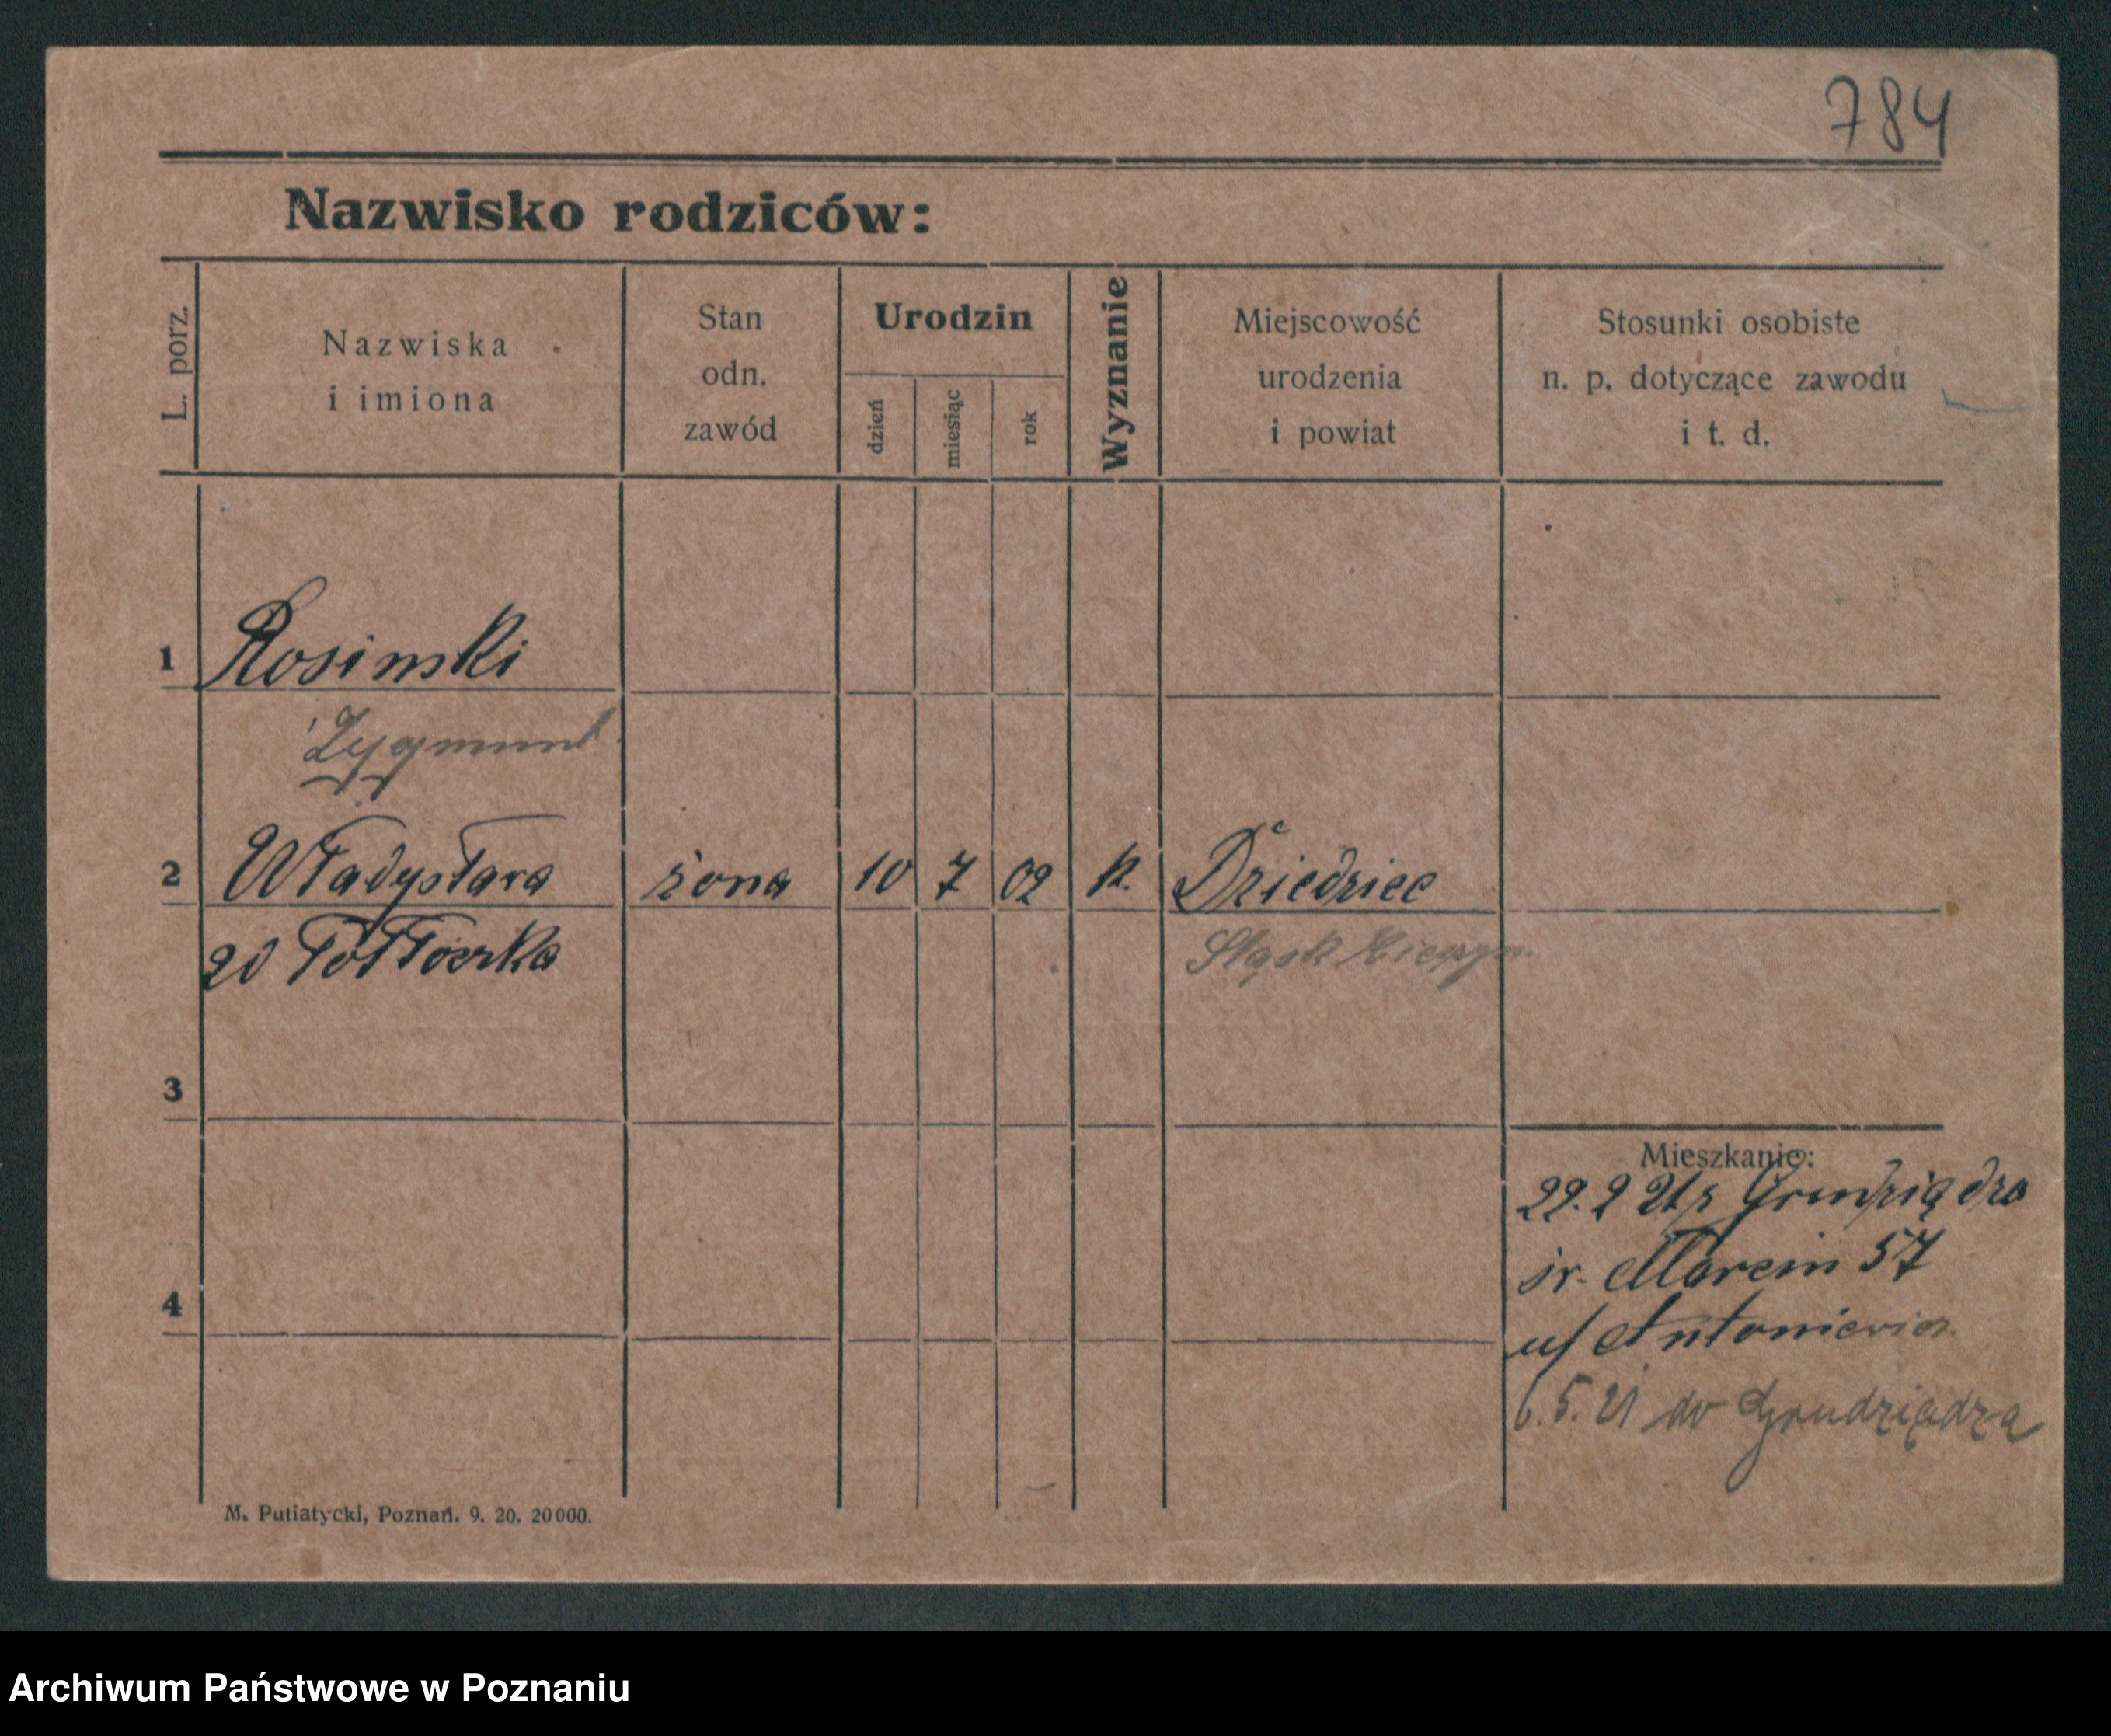 784
Nazwisko rodziców:
L. porz.
Nazwiska
i imiona
Stan
odn.
zawód
Urodzin
dzień
miesiąc
rok
Wyznanie
Miejscowość
urodzenia
i powiat
Stosunki osobiste
n. p. dotyczące zawodu
i t. d.
1 Rosinski
Zygmunt
2 Władysława żona 10 7 02 k. Dziedzice
Śląsk Cieszyn.
3
Mieszkanie:
22. 2 21 z Grudziądza
św. Marcin 57
u/ Antoniewicz
4
6. 5. 21 do Grudziądza
M. Putiatycki, Poznań. 9. 20. 20000.
Archiwum Państwowe w Poznaniu